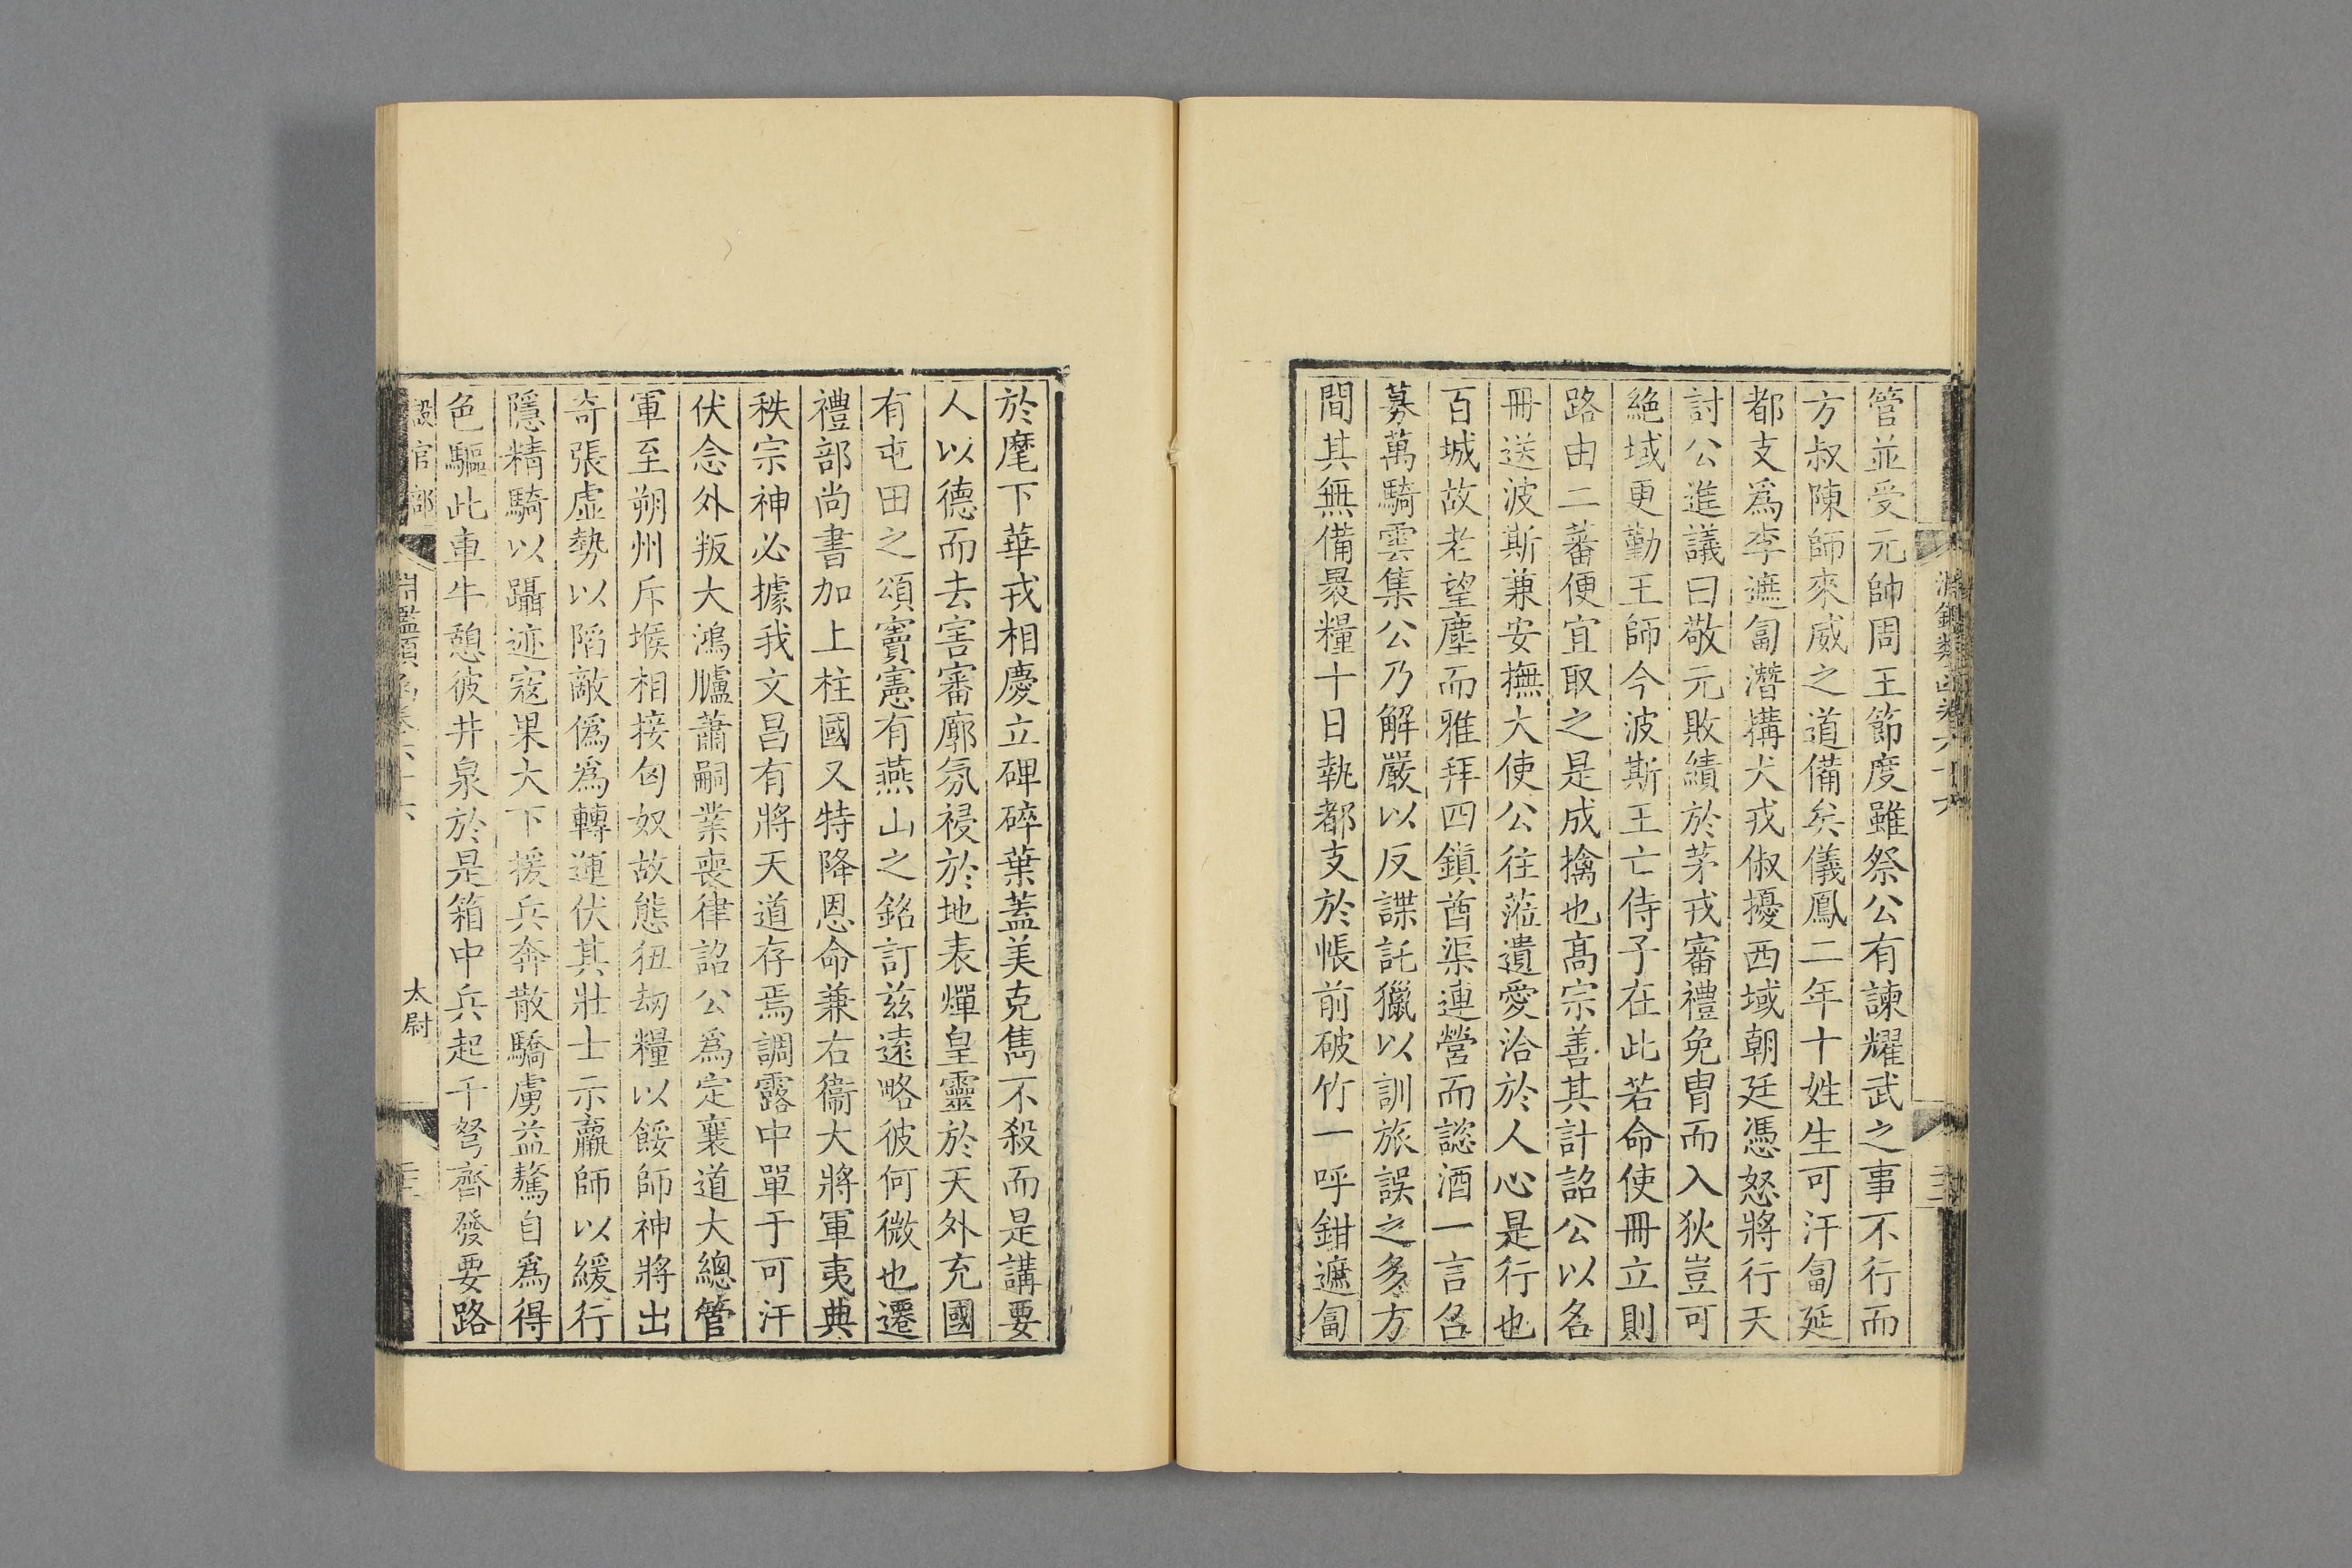 管並受元帥周王節度雖祭公有諫耀武之事不行而
方叔陳師來威之道備矣儀鳳二年十姓生可汗匐延
都支爲李遮匐潛搆犬戎俶擾西域朝廷憑怒將行天
討公進議曰敬元敗績於茅戎審禮免胄而入狄豈可
絶域更勤王師今波斯王亡侍子在此若命使冊立則
路由二蕃便宜取之是成擒也高宗善其計詔公以名
冊送波斯兼安撫大使公往蒞遺愛洽於人心是行也
百城故老望塵而雅拜四鎮酋渠連營而謐酒一言召
募萬騎雲集公乃解嚴以反諜託獵以訓旅誤之多方
間其無備曩糧十日執都支於帳前破竹一呼鉗遮匐
於麾下華戎相慶立碑碎葉蓋美克雋不殺而是講要
人以德而去害審廓氛祲於地表燀皇靈於天外充國
有屯田之頌竇憲有燕山之銘訂兹遠略彼何微也遷
禮部尚書加上柱國又特降恩命兼右衞大將軍夷典
秩宗神必據我文昌有將天道存焉調露中單于可汗
伏念外叛大鴻臚蕭嗣業喪律詔公爲定襄道大總管
軍至朔州斥堠相接匈奴故態狃劫糧以餒師神將出
奇張虚勢以陷敵僞爲轉運伏其壯士示羸師以緩行
隱精騎以躡迹寇果大下援兵奔散驕虜益驁自爲得
色驅此車牛憩彼井泉於是箱中兵起千弩齊發要路
設官部
淵鑑類函卷六十六
太尉